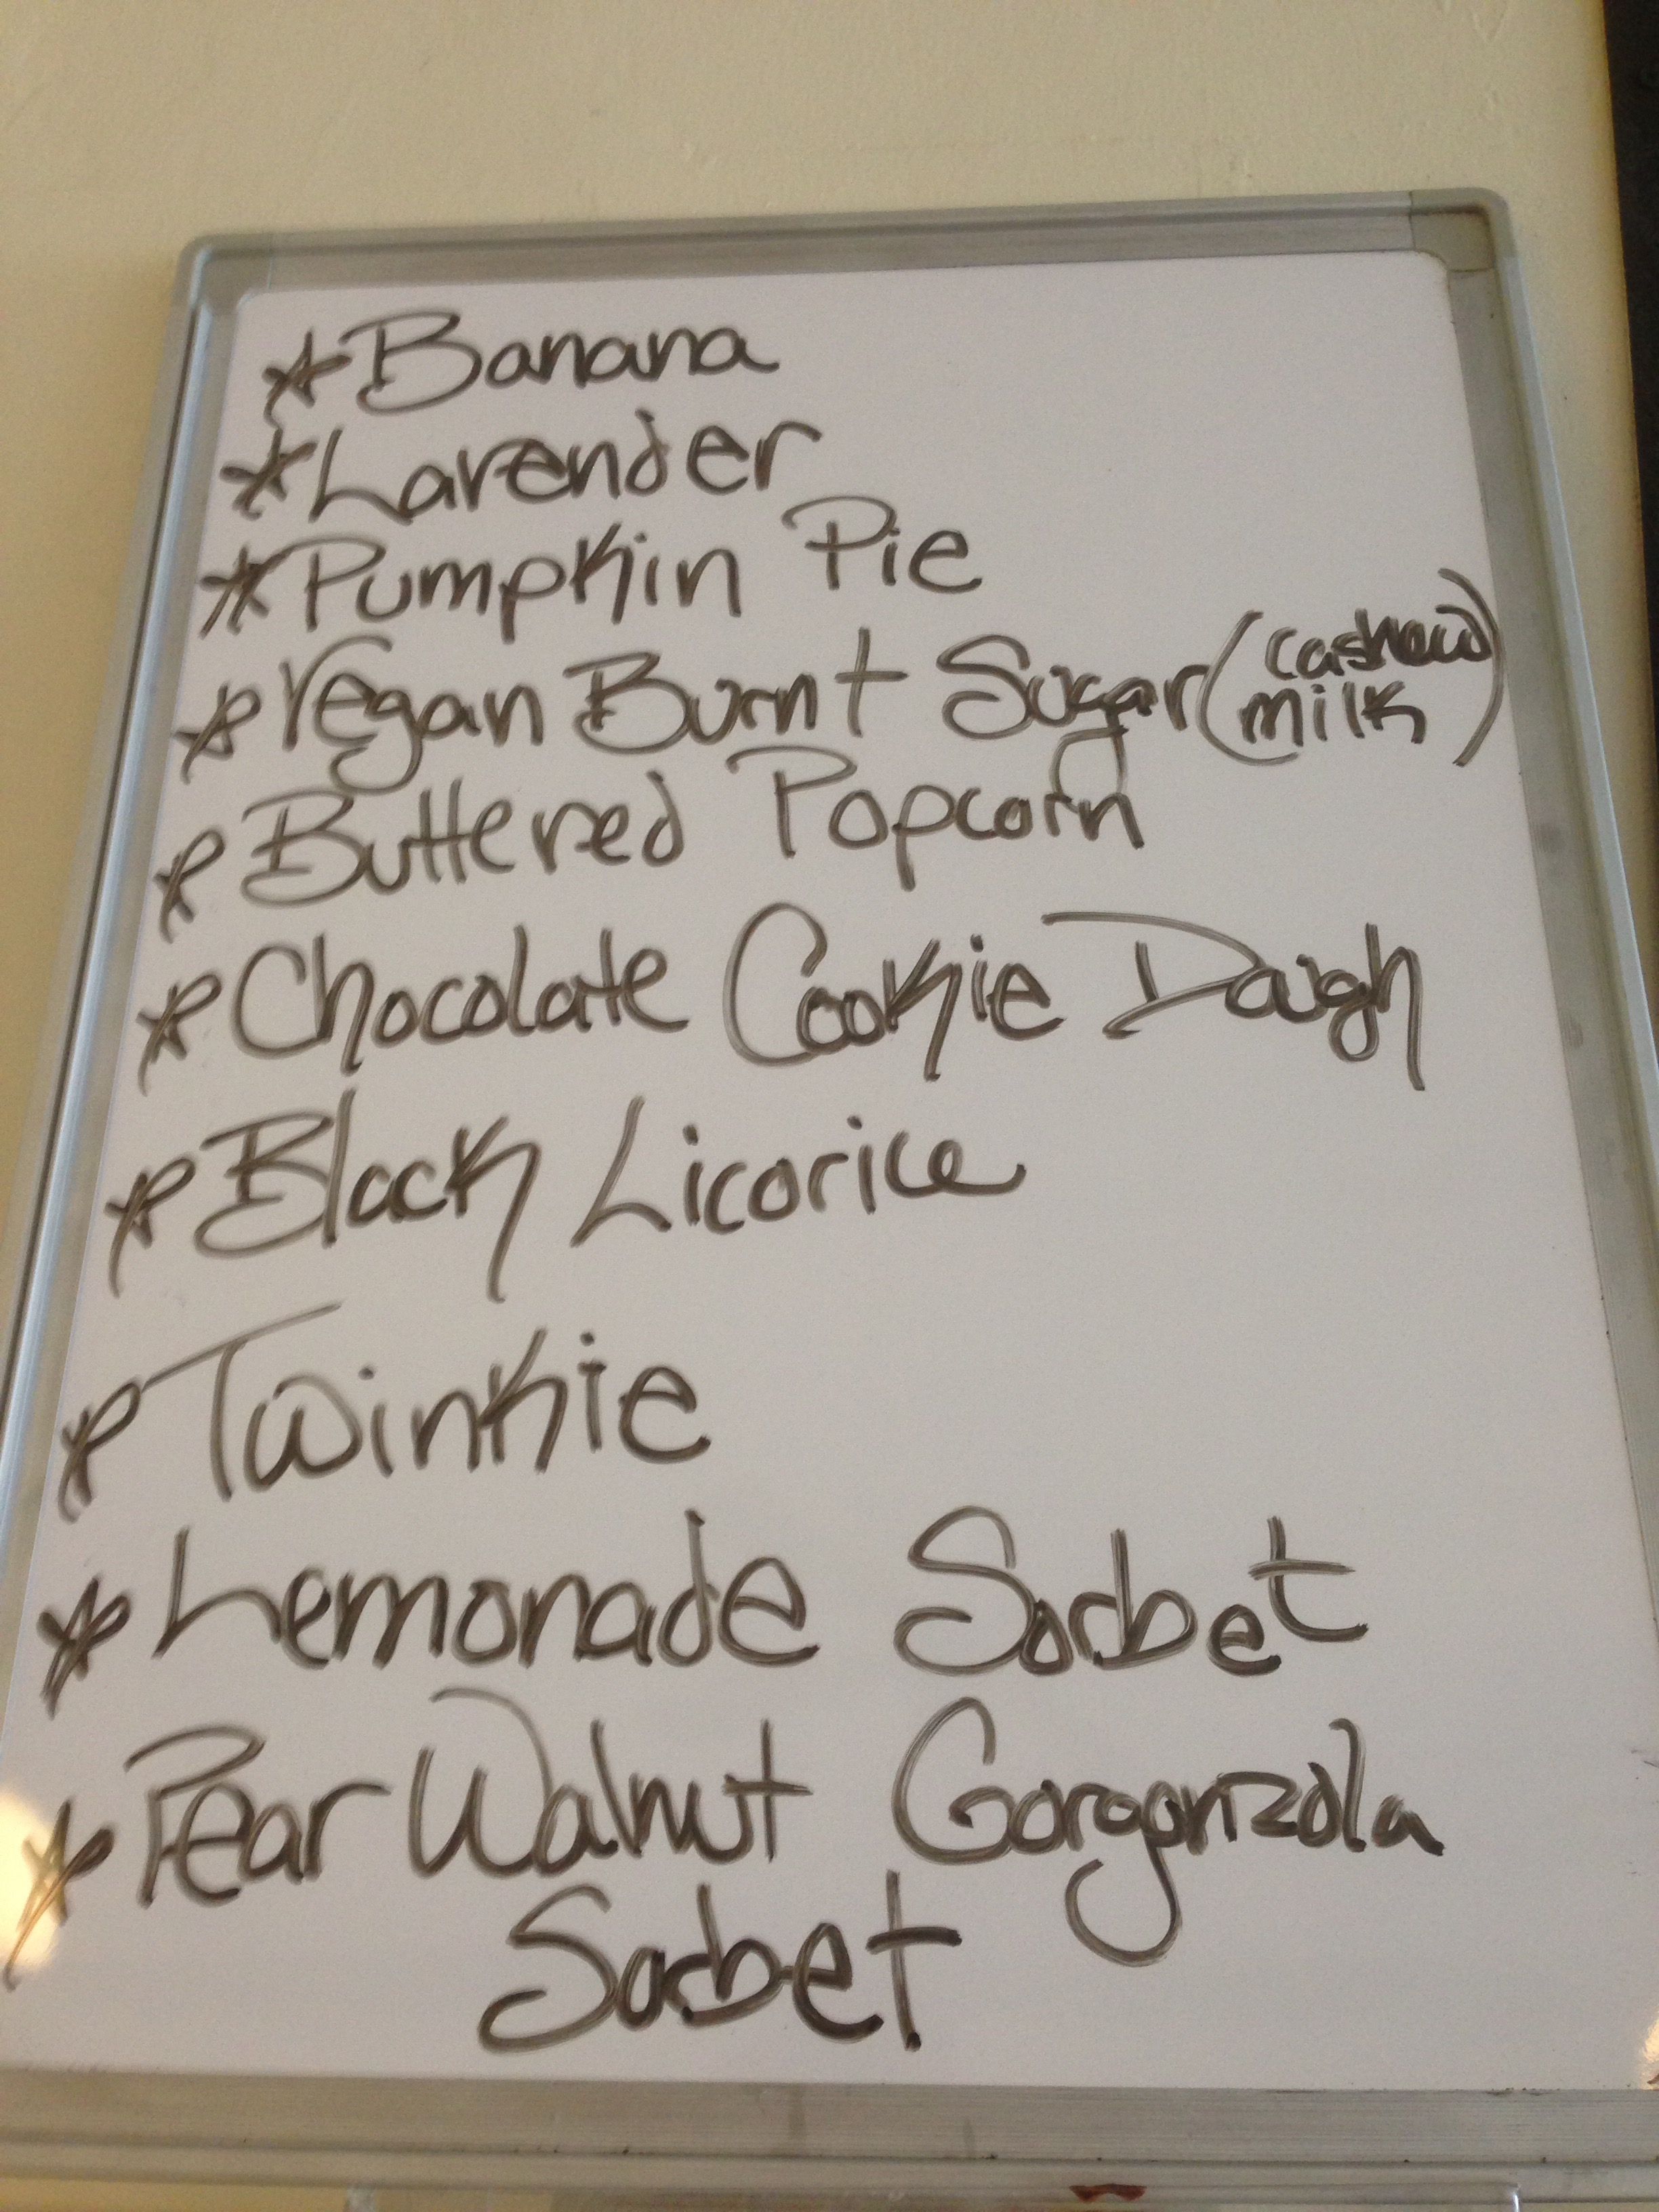 * Banana
* Lavender
* Pumpkin Pie
* Vegan Burnt Sugar (cashew milk)
* Buttered Popcorn
* Chocolate Cookie Dough
* Black Licorice
* Twinkie
* Lemonade Sorbet
* Pear Walnut Gorgonzola
Sorbet